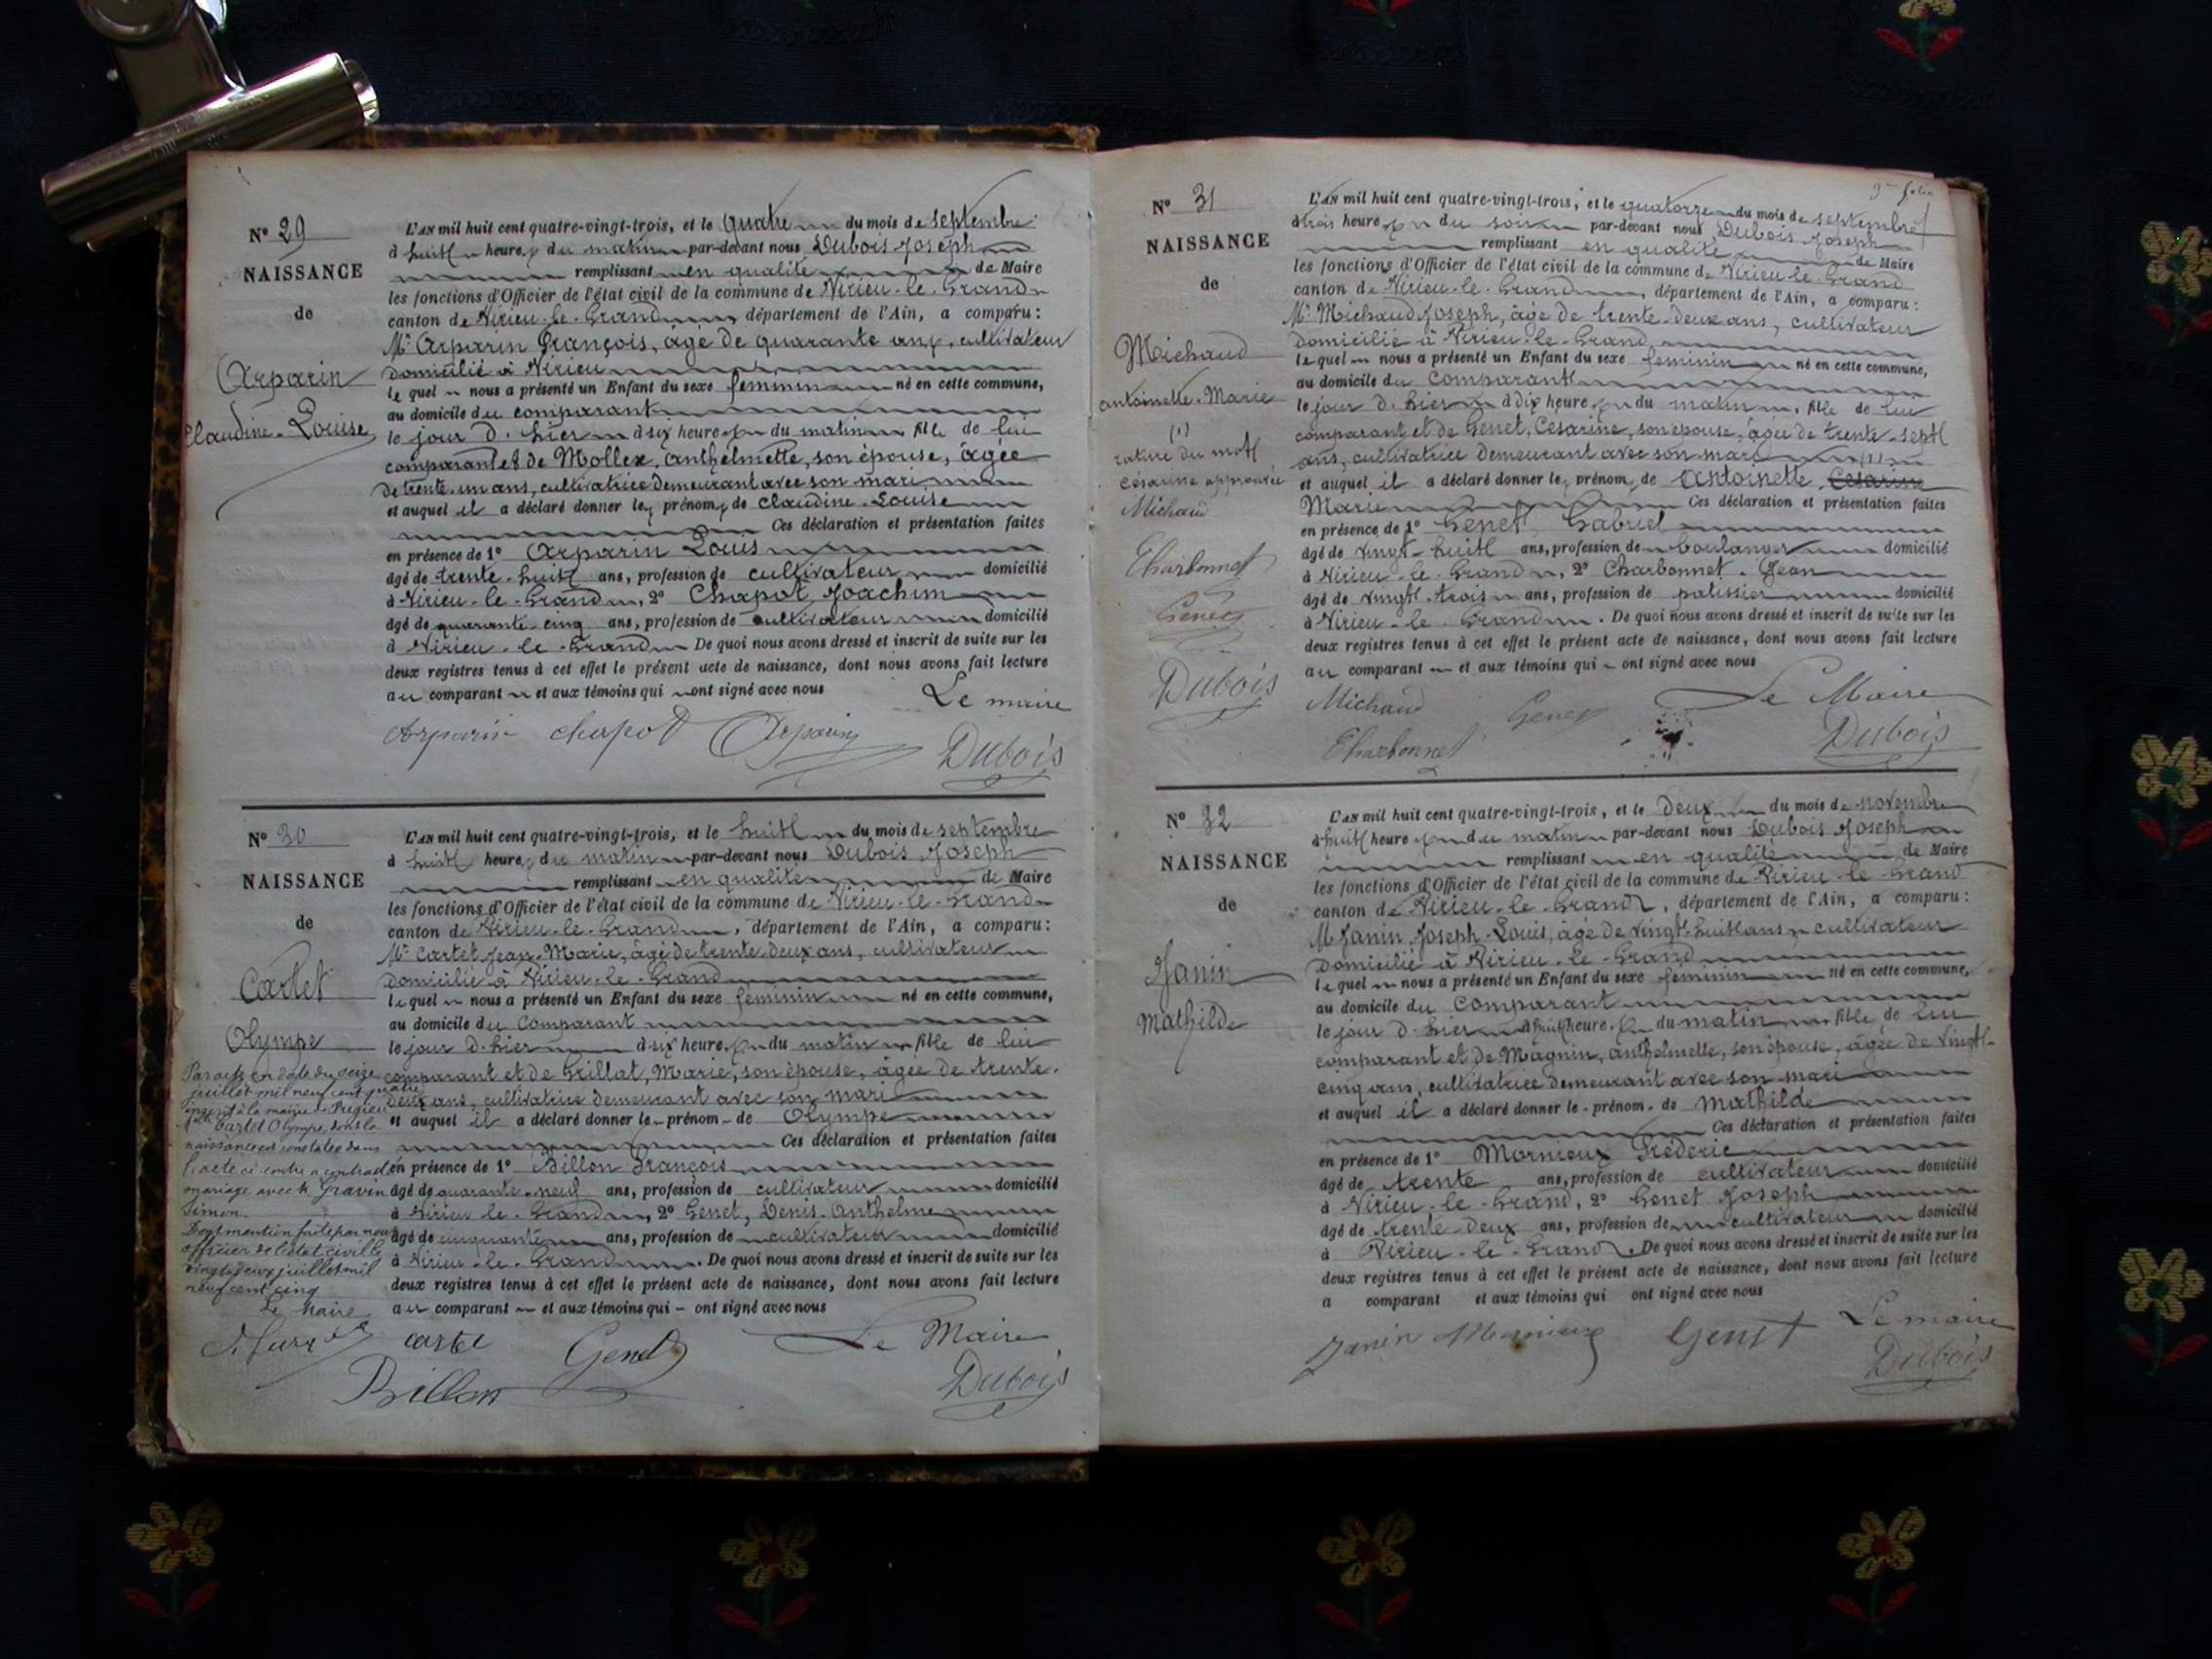 N° 29
NAISSANCE
de
Arparin
Claudine-Louise
L'AN mil huit cent quatre-vingt-trois, et le quatre du mois de septembre
à huit heures du matin par-devant nous Dubois Joseph
remplissant en qualité de Maire
les fonctions d'Officier de l'état civil de la commune de Virieu-le-Grand
canton de Virieu-le-Grand, département de l'Ain, a comparu:
Mr Arparin François, âgé de quarante ans, cultivateur
domicilié à Virieu
lequel nous a présenté un Enfant du sexe feminin né en cette commune,
au domicile du comparant
le jour d'hier à six heures du matin, fille de lui
comparant et de Mollex, anthelmette, son épouse, âgée
de trente-un ans, cultivatrice demeurant avec son mari
et auquel il a déclaré donner les prénoms de Claudine-Louise
Ces déclaration et présentation faites
en présence de 1° Arparin Louis
âgé de trente-huit ans, profession de cultivateur domicilié
à Virieu-le-Grand, 2° Chapot Joachim
âgé de quarante-cinq ans, profession de cultivateur domicilié
à Virieu-le-Grand De quoi nous avons dressé et inscrit de suite sur les
deux registres tenus à cet effet le présent acte de naissance, dont nous avons fait lecture
au comparant et aux témoins qui ont signé avec nous
Le maire
Arparin chapot Arparin Dubois
N° 30
NAISSANCE
de
Cartet
Olympe
Par acte en date du seize
juillet mil neuf cent quatre
inscrit à la mairie de Pugieu
Cartet Olympe, dont la
naissance est constatée dans
l'acte ci contre a contracté
mariage avec M. Gravin
Simon.
Dont mention faite par nous
officier de l'état civil le
vingt-deux juillet mil
neuf cent cinq
Le Maire
L'AN mil huit cent quatre-vingt-trois, et le huit du mois de septembre
à huit heures du matin par-devant nous Dubois Joseph
remplissant en qualité de Maire
les fonctions d'Officier de l'état civil de la commune de Virieu-le-Grand
canton de Virieu-le-Grand, département de l'Ain, a comparu:
Mr Cartet Jean-Marie, âgé de trente-deux ans, cultivateur
domicilié à Virieu-le-Grand
lequel nous a présenté un Enfant du sexe féminin né en cette commune,
au domicile du comparant
le jour d'hier à six heures du matin fille de lui
comparant et de Grillat, Marie, son épouse, âgée de trente-
deux ans, cultivatrice demeurant avec son mari
et auquel il a déclaré donner le prénom de Olympe
Ces déclaration et présentation faites
en présence de 1° Billon François
âgé de quarante-neuf ans, profession de cultivateur domicilié
à Virieu-le-Grand, 2° Genet, Denis-Anthelme
âgé de cinquante ans, profession de cultivateur domicilié
à Virieu-le-Grand. De quoi nous avons dressé et inscrit de suite sur les
deux registres tenus à cet effet le présent acte de naissance, dont nous avons fait lecture
au comparant et aux témoins qui ont signé avec nous
cartet Genet Le Maire
Billon Dubois
9me folio
N° 31
NAISSANCE
de
Michaud
antoinette-Marie
(1)
rature du mot
césarine approuvée
Michaud
Charbonnet
Genet
Dubois
L'AN mil huit cent quatre-vingt-trois, et le quatorze du mois de septembre
à trois heures du soir par-devant nous Dubois Joseph
remplissant en qualité de Maire
les fonctions d'Officier de l'état civil de la commune de Virieu-le-Grand
canton de Virieu-le-Grand, département de l'Ain, a comparu:
Mr Michaud Joseph, âgé de trente-deux ans, cultivateur
domicilié à Virieu-le-Grand
lequel nous a présenté un Enfant du sexe feminin né en cette commune,
au domicile du comparant
le jour d'hier à dix heures du matin, fille de lui
comparant et de Genet, Césarine, son épouse, âgée de trente-sept
ans, cultivatrice demeurant avec son mari (1)
et auquel il a déclaré donner les prénoms de Antoinette Césarine
Marie Ces déclaration et présentation faites
en présence de 1° Genet Gabriel
âgé de vingt-huit ans, profession de boulanger domicilié
à Virieu-le-Grand, 2° Charbonnet Jean
âgé de vingt-trois ans, profession de patissier domicilié
à Virieu-le-Grand. De quoi nous avons dressé et inscrit de suite sur les
deux registres tenus à cet effet le présent acte de naissance, dont nous avons fait lecture
au comparant et aux témoins qui ont signé avec nous
Michaud Genet Le Maire
Charbonnet Dubois
N° 32
NAISSANCE
de
Janin
Mathilde
L'AN mil huit cent quatre-vingt-trois, et le deux du mois de novembre
à huit heures du matin par-devant nous Dubois Joseph
remplissant en qualité de Maire
les fonctions d'Officier de l'état civil de la commune de Virieu-le-Grand
canton de Virieu-le-Grand, département de l'Ain, a comparu:
M Janin Joseph-Louis, âgé de vingt-huit ans cultivateur
domicilié à Virieu-le-Grand
lequel nous a présenté un Enfant du sexe feminin né en cette commune,
au domicile du comparant
le jour d'hier à huit heures du matin fille de lui
comparant et de Magnin, anthelmette, son épouse, âgée de vingt-
cinq ans, cultivatrice demeurant avec son mari
et auquel il a déclaré donner le prénom de Mathilde
Ces déclaration et présentation faites
en présence de 1° Mornieux Fréderic
âgé de trente ans, profession de cultivateur domicilié
à Virieu-le-Grand, 2° Genet Joseph
âgé de trente-deux ans, profession de cultivateur domicilié
à Virieu-le-Grand. De quoi nous avons dressé et inscrit de suite sur les
deux registres tenus à cet effet le présent acte de naissance, dont nous avons fait lecture
a comparant et aux témoins qui ont signé avec nous
Janin Mornieux Genet Le maire
Dubois